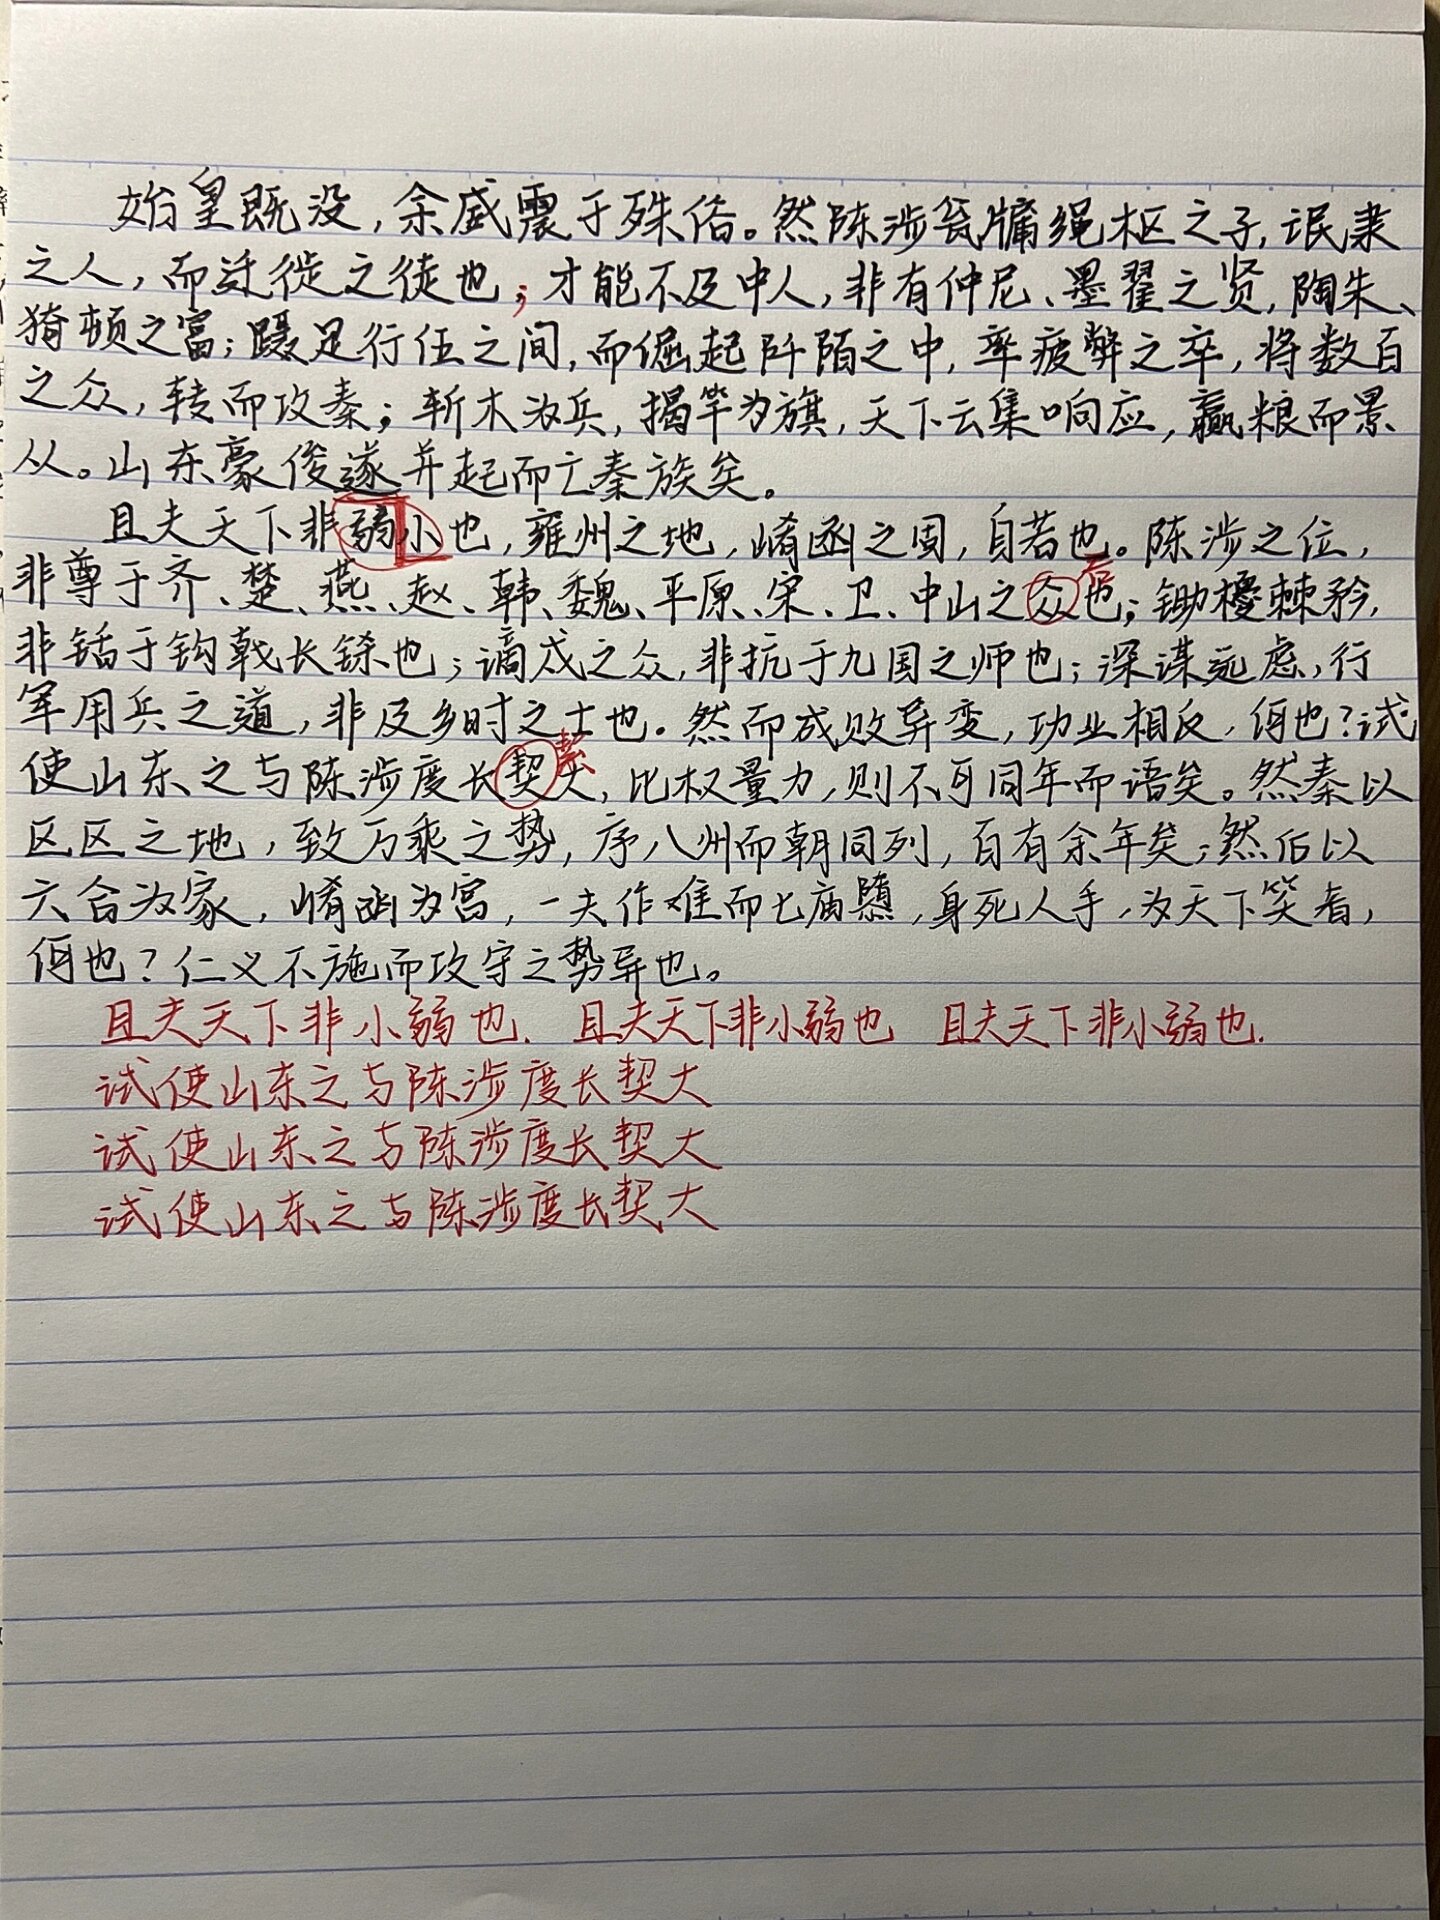 始皇既没，余威震于殊俗。然陈涉瓮牖绳枢之子，氓隶
之人，而迁徙之徒也；才能不及中人，非有仲尼、墨翟之贤，陶朱、
猗顿之富；蹑足行伍之间，而倔起阡陌之中，率疲弊之卒，将数百
之众，转而攻秦；斩木为兵，揭竿为旗，天下云集响应，赢粮而景
从。山东豪俊遂并起而亡秦族矣。
且夫天下非弱小也，雍州之地，崤函之固，自若也。陈涉之位，
君
非尊于齐、楚、燕、赵、韩、魏、平原、宋、卫、中山之众也；锄櫌棘矜，
非铦于钩戟长铩也；谪戍之众，非抗于九国之师也；深谋远虑，行
军用兵之道，非及乡时之士也。然而成败异变，功业相反，何也？试
絜
使山东之与陈涉度长契大，比权量力，则不可同年而语矣。然秦以
区区之地，致万乘之势，序八州而朝同列，百有余年矣；然后以
六合为家，崤函为宫，一夫作难而七庙隳，身死人手，为天下笑者，
何也？仁义不施而攻守之势异也。
且夫天下非小弱也. 且夫天下非小弱也 且夫天下非小弱也.
试使山东之与陈涉度长契大
试使山东之与陈涉度长契大
试使山东之与陈涉度长契大